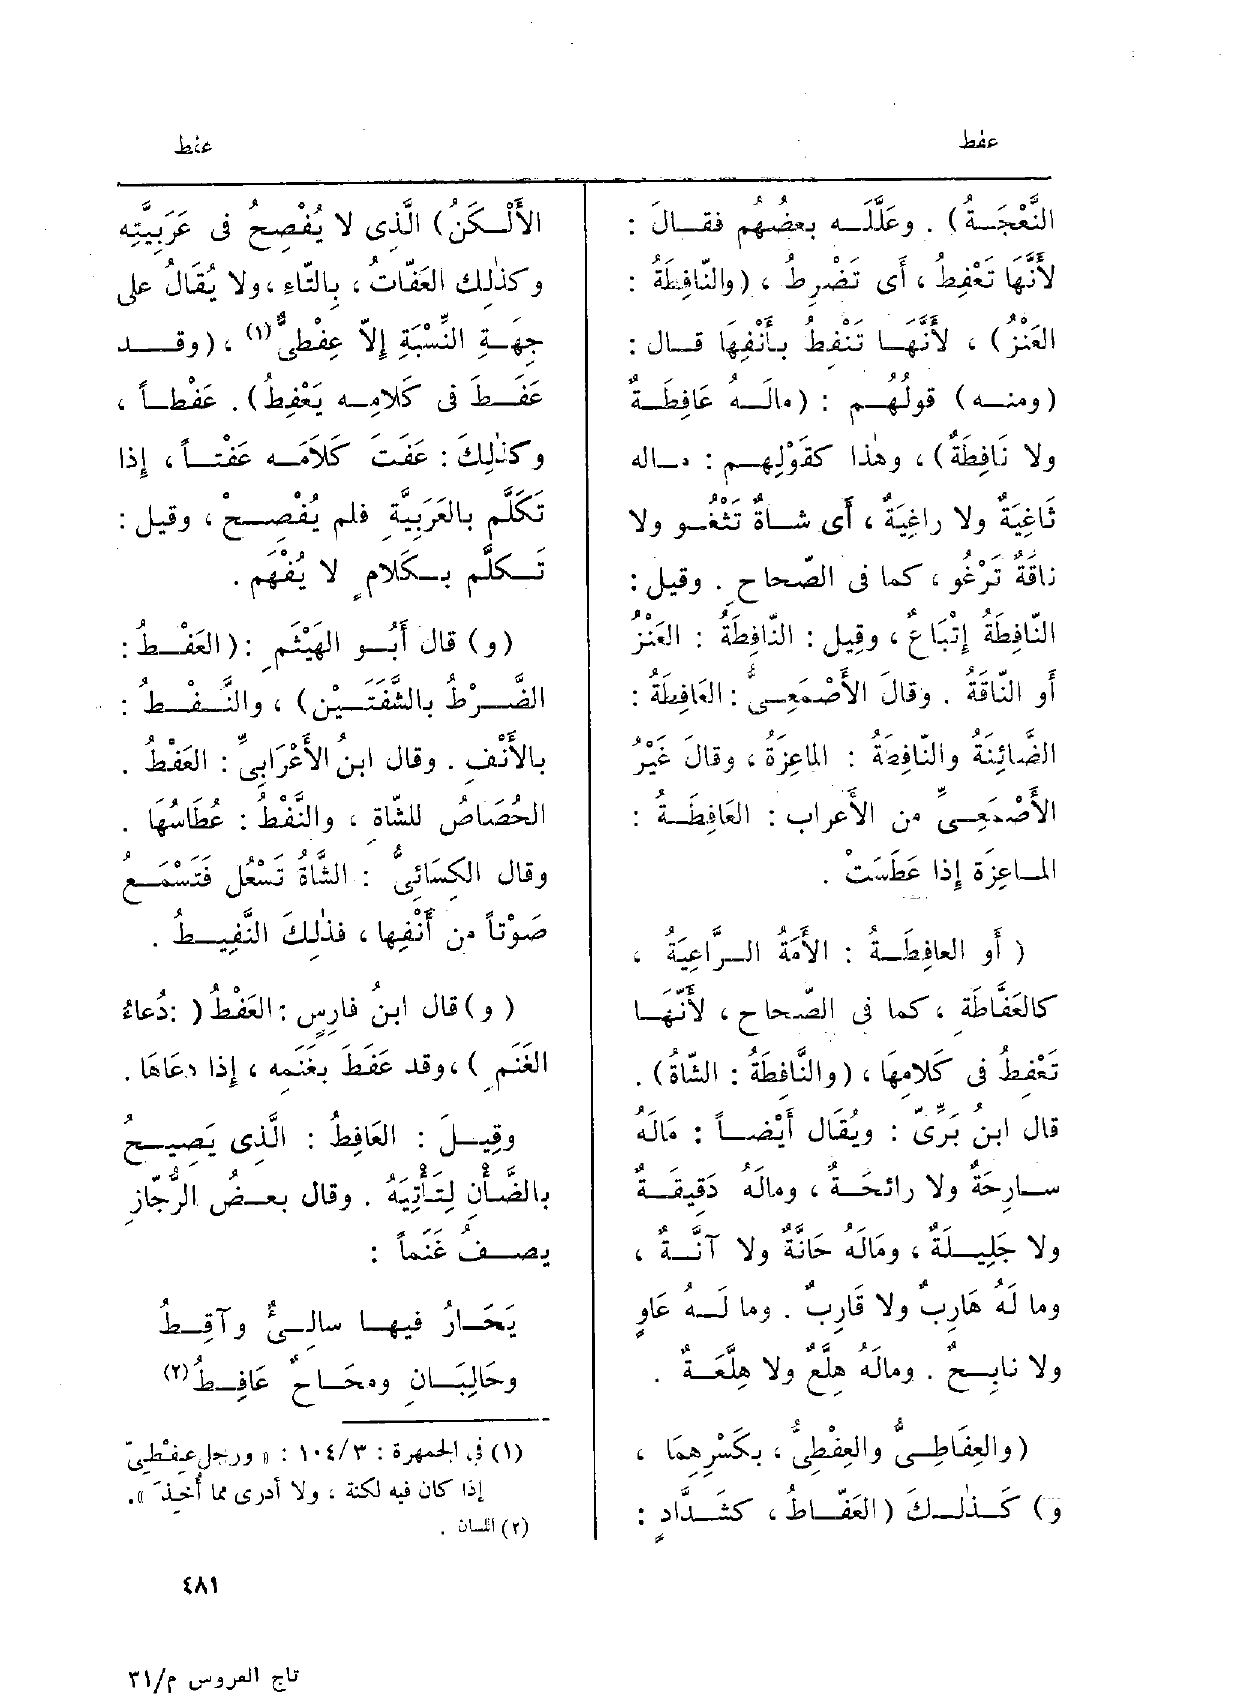 عفط
عفط
النَّعْجَـةُ) . وعَلَّلـه بعضُهم فقـالَ :
لأَنَّهَا تَعْفِطُ ، أَى تَضْرِطُ ، (والنَّافِطَةُ :
العَنْزُ) ، لأَنَّهَـا تَنْفِطُ بأَنْفِهَا قـال :
(ومنـه) قولُهُـم : (مالَـهُ عَافِطَـةٌ
ولا نَافِطَةٌ) ، وهٰذا كقَوْلِهـم : مـاله
ثَاغِيَةٌ ولا راغِيَةٌ ، أَى شـاةٌ تَثْغُـو ولا
ناقَةٌ تَرْغُو ، كما فى الصّحاحِ . وقيل :
النّافِطَةُ إِتْبَاعٌ ، وقِيل : النّافِطَةُ : العَنْزُ
أَو النّاقَةُ . وقالَ الأَصْمَعِـىُّ : العَافِطَةُ :
الضَّائِنَةُ والنّافِطَةُ : الماعِزَةُ ، وقالَ غَيْرُ
الأَصْمَعِـىِّ من الأَعراب : العَافِطَـةُ :
المـاعِزَة إِذا عَطَسَتْ .
( أَو العافِطَـةُ : الأَمَةُ الـرَّاعِيَةُ ،
كالعَفَّاطَة ، كما فى الصّحاحِ ، لأَنَّهَـا
تَعْفِطُ فى كَلامِهَا ، (والنَّافِطَةُ : الشّاةُ) .
قال ابنُ بَرِّىّ : ويُقَال أَيْضـاً : مَالَهُ
سـارِحَةٌ ولا رائحَـةٌ ، ومالَهُ دَقِيقَـةٌ
ولا جَلِيـلَةٌ ، ومَالَهُ حَانَّةٌ ولا آنَّـةٌ ،
وما لَهُ هَارِبٌ ولا قَارِبٌ . وما لَـهُ عَاوٍ
ولا نابِـحٌ . ومالَهُ هِلَّعٌ ولا هِلَّعَـةٌ .
(والعِفَاطِـىُّ والعِفْطِىُّ ، بكَسْرِهِمَا ،
و) كَـذٰلـكَ (العَفّـاطُ ، كشَـدَّادٍ :
الأَلْـكَنُ) الَّذِى لا يُفْصِحُ فى عَرَبِيَّتِه
وكذٰلِك العَفّاتُ ، بالتّاءِ ،ولا يُقَالُ على
جِهَـةِ النِّسْبَةِ إِلاَّ عِفْطِىٌّ(١) ، (وقـد
عَفَـطَ فى كَلامِـه يَعْفِطُ) . عَفْطـاً ،
وكذٰلِكَ : عَفَتَ كَلامَـه عَفْتـاً ، إِذا
تَكَلَّم بالعَرَبِيَّةِ فلم يُفْصِـحْ ، وقيل :
تَـكلَّم بـكَلامٍ لا يُفْهَم .
(و) قال أَبُـو الهَيْثَمِ : (العَفْـطُ :
الضَّـرْطُ بالشَّفَتَـيْن) ، والنَّـفْـطُ :
بالأَنْفِ . وقال ابنُ الأَعْرَابِىِّ : العَفْطُ .
الحُصَاصُ للشّاة ، والنَّفْطُ : عُطَاسُهَا .
وقال الكِسَائىُّ : الشَّاةُ تَسْعُل فَتَسْمَـعُ
صَوْتاً من أَنْفِها ، فذٰلِكَ النَّفِيـطُ .
( و) قال ابنُ فارِسٍ : العَفْطُ ( :دُعاءُ
الغَنَمِ ) ،وقد عَفَطَ بغَنَمِه ، إِذا دعَاهَا .
وقِيـلَ : العَافِطُ : الَّذِى يَصِيـحُ
بالضَّأْنِ لِتَأْتِيَهُ . وقال بعـضُ الرُّجّازِ
يصـفُ غَنَماً :
يَحَـارُ فيهـا سالِـئٌ وآقِـطُ
وحَالِبَـان ومحَـاحٌ عَافِـطُ(٢)
(١) فى الجمهرة : ١٠٤/٣ : « ورجل عِفْطِىّ
إذا كان فيه لكنة ، ولا أدرى مما أُخِذَ ».
(٢) اللسان .
٤٨١
تاج العروس م/٣١